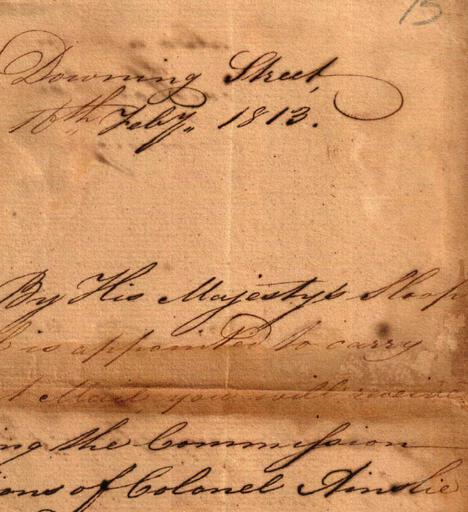 15
Downing Street,
Feby. 1813.
By His Majesty's Sloop
is appointed to carry
Mail, you will receive
ing the Commission
ions of Colonel Ainslie